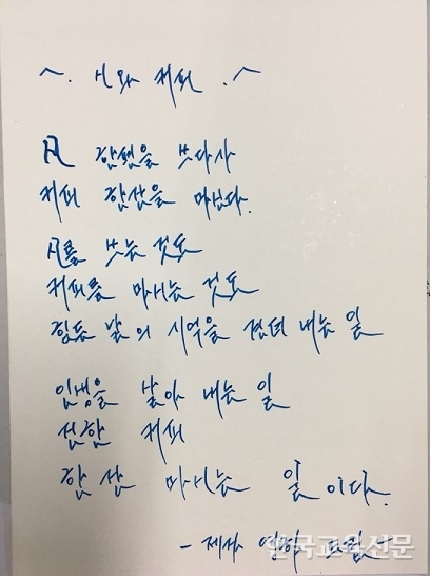 ^. 시와 커피 .^
시 한편을 쓰다가
커피 한잔을 마신다.
시를 쓰는 것도
커피를 마시는 것도
힘든 날의 기억을 견뎌 내는 일
인생을 살아 내는 일
진한 커피
한 잔 마시는 일이다.
- 제자 영하 드림 -
한국교육신문